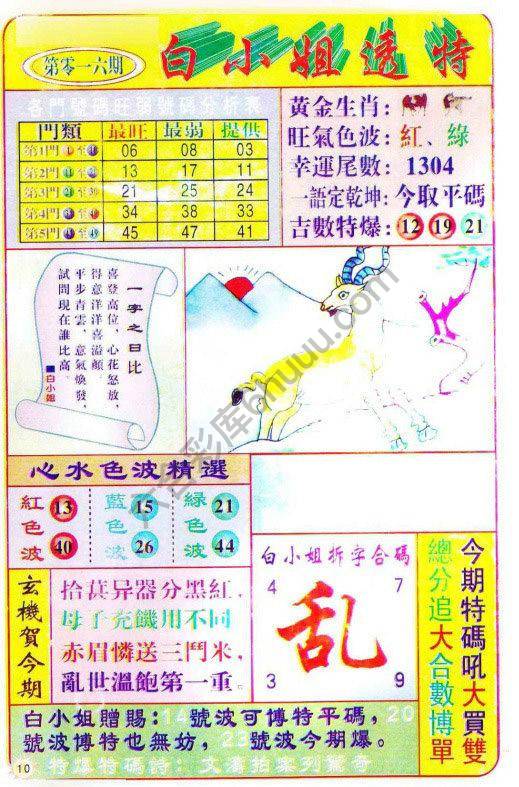 第零一六期
白小姐透特
各門號碼旺弱號碼分析表
門類 最旺 最弱 提供
第1門 06 08 03
第2門 13 17 11
第3門 21 25 24
第4門 34 38 33
第5門 45 47 41
黃金生肖：
旺氣色波：紅、綠
幸運尾數：1304
一語定乾坤：今取平碼
吉數特爆：12 19 21
一字之曰比
喜登高位，心花怒放，
得意洋洋喜溢顏
平步青雲，意氣煥發，
試問現在誰比高。
■白小姐
六合彩库6huuu.com
心水色波精選
紅色波 13 40
藍色波 15 26
綠色波 21 44
玄機賀今期
拾葚异器分黑紅，
母子充饑用不同
赤眉憐送三鬥米，
亂世溫飽第一重。
白小姐拆字合碼
4 7
乱
3 9
今期特碼吼大買雙
總分追大合數博單
白小姐贈賜：14號波可博特平碼，20
號波博特也無妨，23號波今期爆。
特爆特碼詩：文濤拍案列驚奇
10